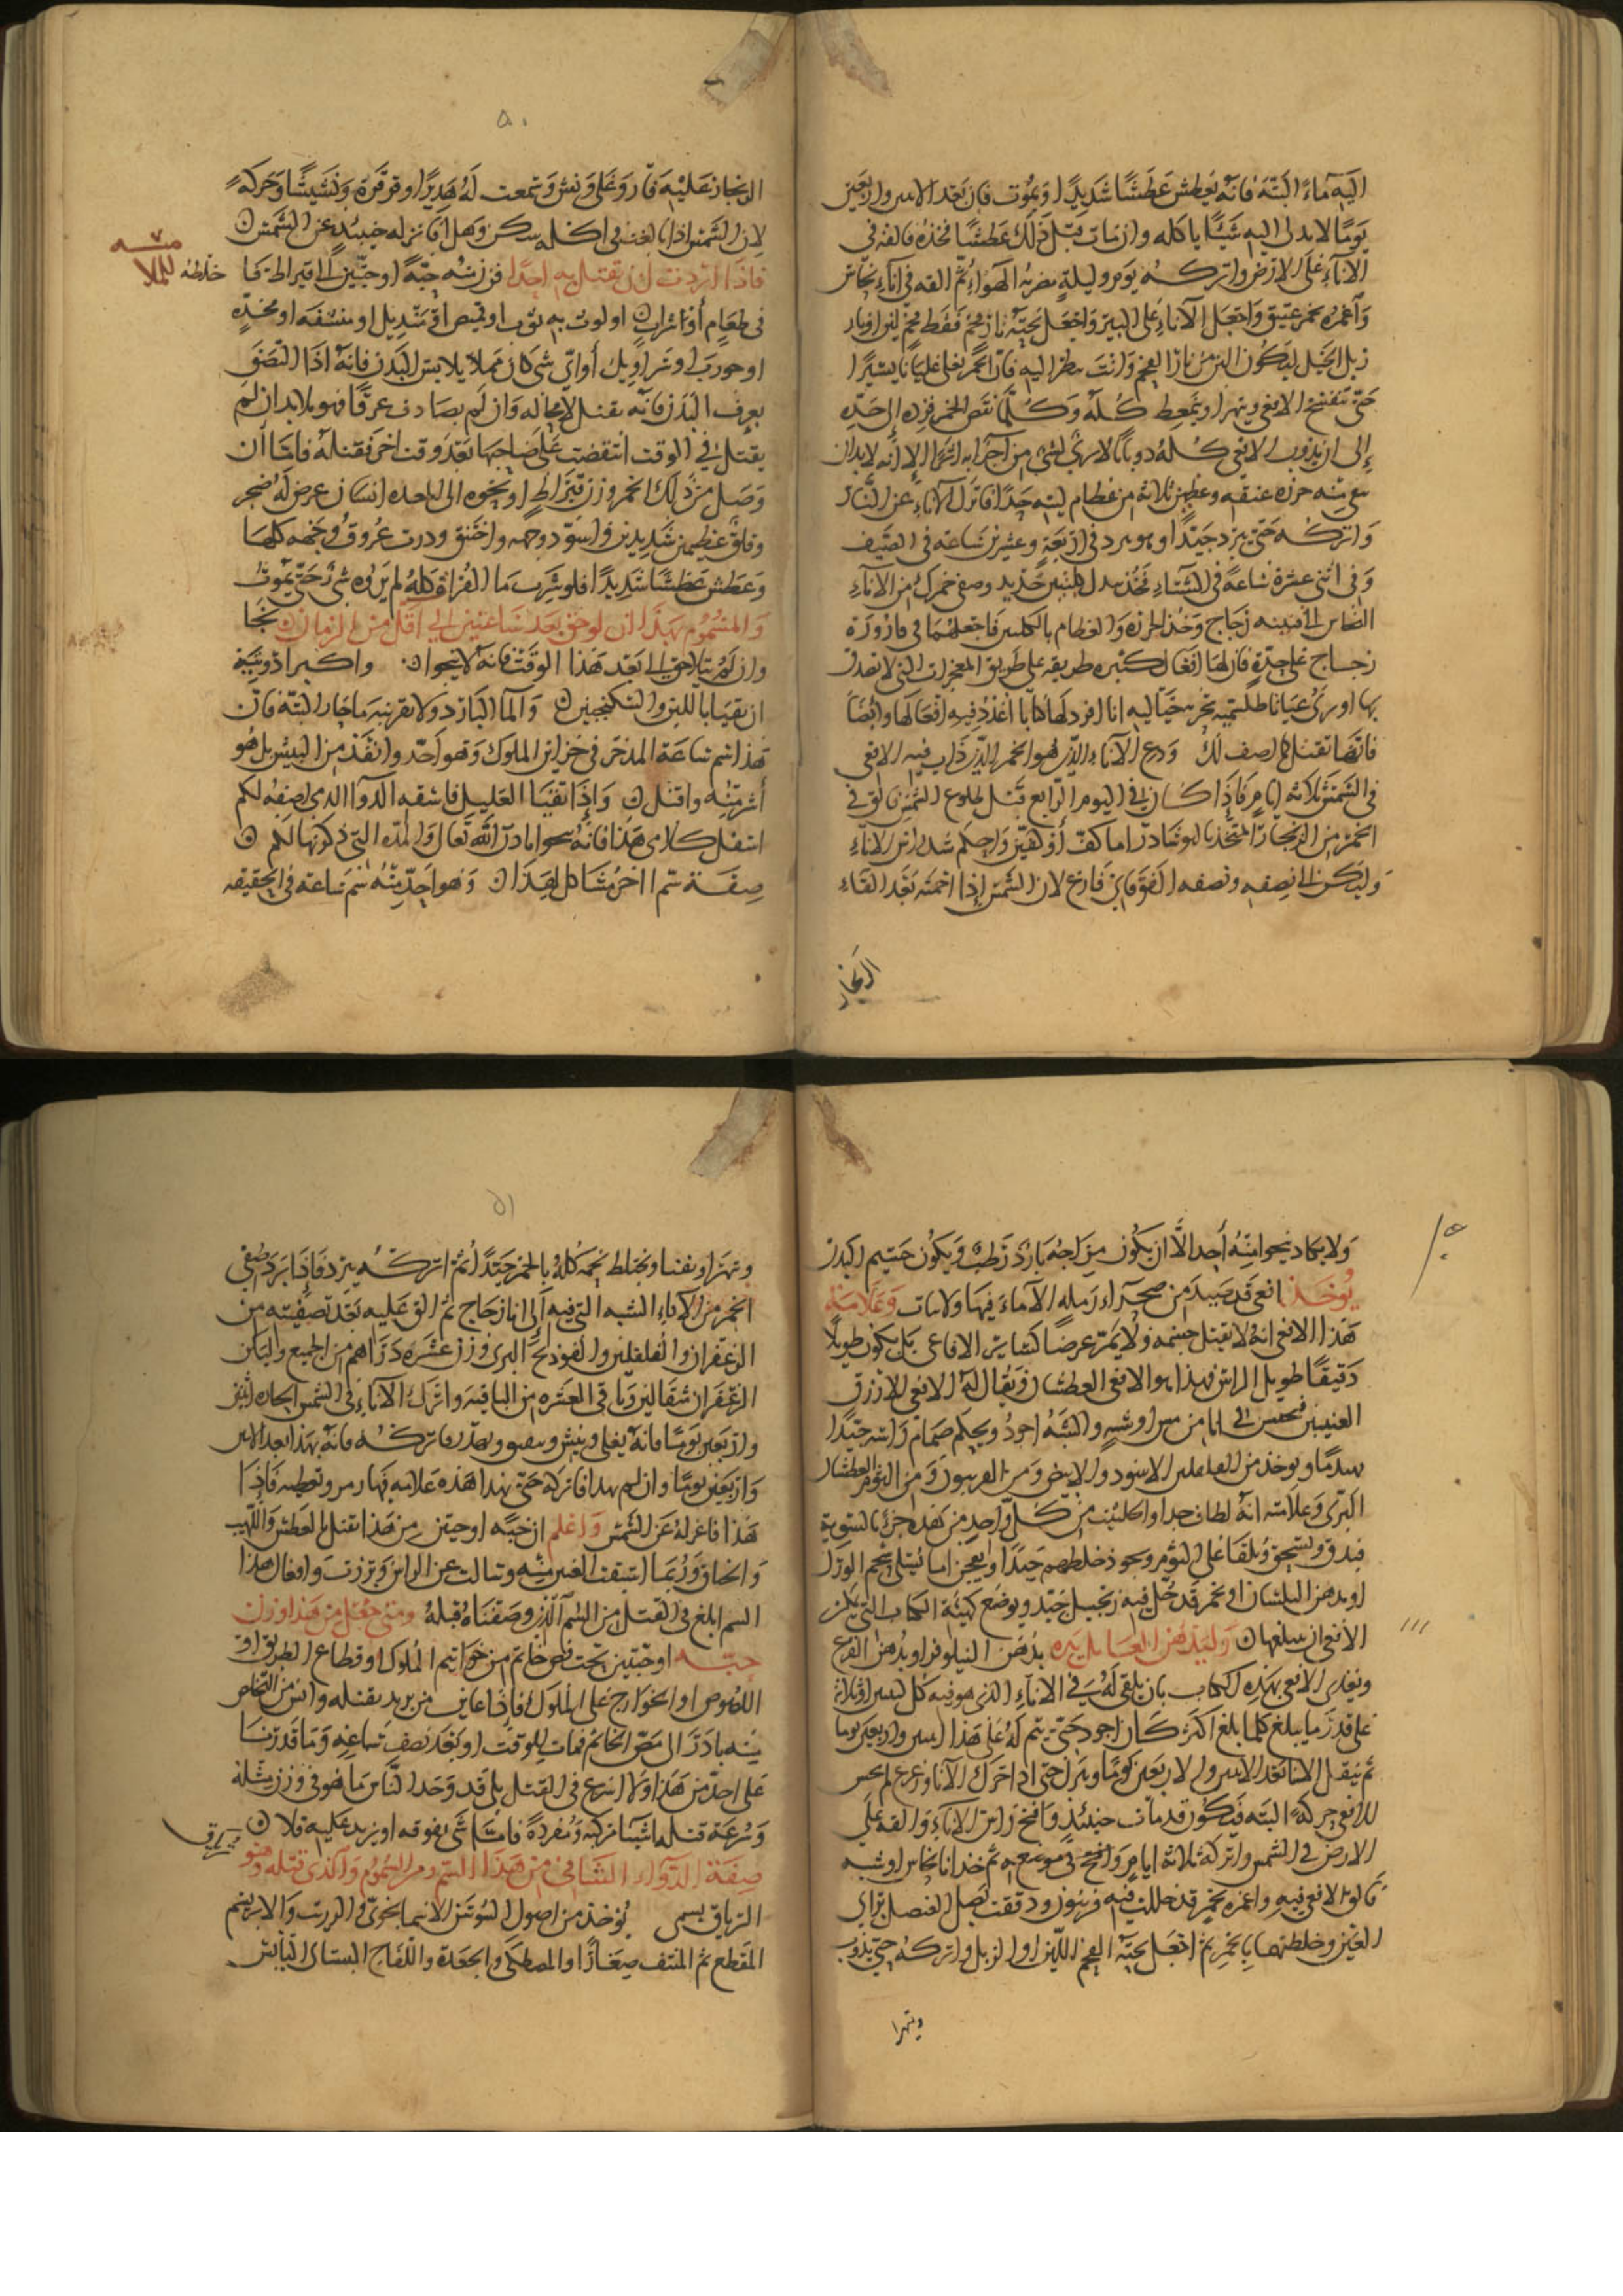 اليه ماءً البتة فانه يعطش عطشًا شديدًا ويموت فان بعد الاثنين والاربعين
يومًا لا يدلى اليه شيئًا ياكله وان مات قبل ذلك عطشًا فخذه فالقه في
الاناء على الارض واتركه يوم وليلةٍ يضربه الهواء ثم القه في اناء نحاس
واغمره بخمر عتيق واجعل الاناء على البير واجعل تحته نار فحم فقط فحم لين او نار
زبل الخيل ليكون الين من نار الفحم وانت تنظر اليه فان الخمر يغلى غليانًا يسيرًا
حتى تتفسخ الافعى ويتهرا ويتمعط كله وكلما نقص الخمر فزده الى حده
إلى ان يذوب الافعى كله ذوبانًا لا يرى لشى من اجزايه اثرًا الا انه لابد ان
يبقى منه خرزه عنقه وعظمين ثلاثه من عظام لينه جدًا فانزل الاناء عن النار
واتركه حتى يبرد جيدًا وهو يبرد في اربعةٍ وعشرين ساعة في الصيف
وفي اثنى عشرة ساعةً في الشتاء فخذ كلبتين حديد وصفى خمرك من الاناء
النحاس الى قنينه زجاج وخذ الخرزه والعظام بالكلبتين فاجعلهما في قارورة
زجاج على حدةٍ فان لها افعال كثيره طريقه على طريق المعجزات التي لا تصدق
بها او ترى عيانًا طلسميه سحريه خياليه انا افرد لها كتابًا اعدد فيه افعالها وايضًا
فانها تقتل كما اصف لك ودع الاناء الذي هو الخمر الذي ذاب فيه الافعى
في الشمس ثلاثة ايام فاذا كان في اليوم الرابع قبل طلوع الشمس فالق في
الخمر من الزنجار المتخذ بالنوشادر اما كف أو كفين واحكم شد راس الاناء
وليكن الى نصفه ونصفه الفوقاني فارغ لان الشمس اذا احمته بعد القاء
الزنجار
الزنجار عليه فار وغلى ونش وسمعت له هديرًا وقرقرة ونشيشًا وحركةً
لان الشمس اذا بلغت في اكله سكن وهدا فانزله حينئذٍ عن الشمس
فاذا اردت ان تقتل به احدًا فزن منه حبةً او حبتين الى قيراط فما خلطه
في طعامٍ أو شرابٍ او لوث به ثوب او قميص او منديل او منشفه او مخده
او جورب او سراويل أو اي شى كان مما لا يلابس البدن فانه اذا التصق
بعرق البدن فانه يقتل لا محاله وان لم يصادف عرقًا فهو لابد ان لم
يقتل في الوقت انتقضت على صاحبها بعد وقت اخر فقتله فاما ان
وصل من ذلك الخمر وزن قيراط او نحوه الى باحده انسان عرض له ضجر
وقلق عظيمين شديدين واسود وجهه واختنق ودرت عروق وجهه كلها
وعطش عطشًا شديدًا فلو شرب ما الفرات كله لم يروه شى حتى يموت
والمسموم بهذا ان لوحق بعد ساعتين الى اقل من الزمان نجا
وان لم يتلاحق الى بعد هذا الوقت فانه لا ينجوا واكبر ادويته
ان يتقيا باللبن والسكنجبين والما البارد ولا تقربه ما حار البته فان
هذا سم ساعة المدخر في خزاين الملوك وهو احد وانفذ من البيش بل هو
أشر منه واقتل وإذا تقيا العليل فاسقه الدوا الذي اصفه لكم
اسفل كلامى هذا فانه ينجوا باذن الله تعالى والمده التي ذكرتها لكم
صفة سم اخر مشاكل لهذا وهو احد منه سم ساعة في الحقيقه
ولا يكاد ينجوا منه أحد الا ان يكون مزاجه بارد رطب ويكون جسيم البدن
يوخذ افعى قد صيد من صحراء رمله لا ماء فيها ولا نبات وعلامة
هذا الافعى انه لا يقبل جسمه ولا يمر عرضًا كساير الافاعى بل يكون طويلًا
دقيقًا طويل الراس فهذا هو الافعى العطشان ويقال له الافعى الازرق
العينين فيحبس الى انا من مس او شبه والشبه اجود ويحكم صمام راسه جيدًا
ويوخذ من الفلفلين الاسود والابيض ومن الفربيون ومن الثوم العطشان
البرى وعلامته انه لطاف جدا واكتبت من كل واحدٍ من هذه جزء بالسوية
فيدق ويسحق ويلقا على الثوم ويجود خلطهم جيدًا ويعجن اما بشحم الورل
او بدهن البلسان او بخمر قد حل فيه زنجبيل جيد ويوضع كهيئة الكباب التى يمكن
الافعى ان يبلعها وليدهن العامل يده بدهن النيلوفر او بدهن القرع
ويغدى الافعى بهذه الكباب بان يلقى له في الاناء الذى هو فيه كل اثنين او ثلاثة
على قدر ما يبلع كلما بلع اكثر كان اجود حتى يتم له على هذا اثنين واربعين يوما
ثم ينقل الانا بعد الاثنين والاربعين يومًا وينزل حتى اذا حرك الانا وزعزع لم يحس
للافعى حركة البته فيكون قد مات حينئذٍ وافتح راس الاناء والقه على
الارض في الشمس واتركه ثلاثة ايامٍ وافتح في موضعه ثم خذ انا نحاس او شبه
فالق الافعى فيه واغمره بخمر قد حللت فيه فربيون ودققت بصل العنصل براى
العين وخلطتها بالخمر ثم اجعل تحته الفحم اللين او الزبل واتركه حتى يذوب
ويتهرا
ويتهرا ويفنا ويختلط لحمه كله بالخمر جيدًا ثم اتركه يبرد فاذا برد صفى
الخمر من الاناء الشبه التي فيه إلى انا زجاج ثم الق عليه بعد تصفيته من
الزعفران والفلفلين والفوذنج البرى وزن عشره دراهم من الجميع وليكن
الزعفران مثقالين وباقي العشره من الباقيه واترك الاناء في الشمس الحاره اثنين
واربعين يومًا فانه يغلى وينش ويهدر فاتركه فانه يهدا بعد الاثنين
واربعين يومًا وان لم يهدا فاتركه حتى يهدا هذه علامه فهارمر وتعطيه فاذا
هدا فاعزله عن الشمس واعلم ان حبه او حبتين من هذا تقتل بالعطش واللهيب
والخناق وربما انشقت العين منه وسالت عن الراس وبرزت وافعال هذا
السم ابلغ في القتل من السم الذي وصفناه قبله ومتى جعل من هذا وزن
حبه او حبتين تحت فص خاتم من خواتيم الملوك او قطاع الطريق او
اللصوص او الخوارج على الملوك فاذا عاين من يريد بقتله وايس من التخلص
منه بادر الى مص الخاتم فمات للوقت او بعد نصف ساعةٍ وما قدرنا
على احد من هذا ولا اسرع في القتل بلى قد وجد الناس ما هو في وزن مثله
وسرعة قتله اشيا مركبه ومفردة فاما شى يفوقه او يزيد عليه فلا
صفة الدواء الشافى من هذا السم من الحموم والذي قتله وهو
الترياق يسمى يوخذ من اصول السوسن الاسمانجونى والزرنب والابريسم
المقطع ثم المنتف صغارًا والمصطكى والجعدة واللفاح البستانى اليابس